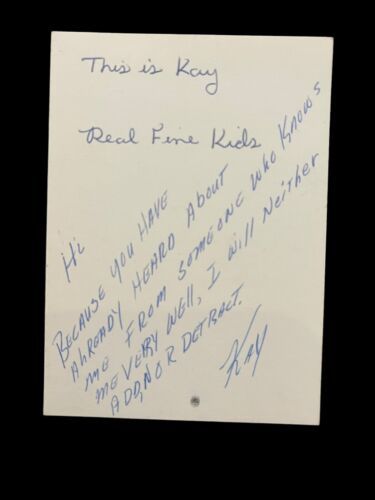 This is Kay
Real Fine Kids
Hi
BECAUSE YOU HAVE
ALREADY HEARD ABOUT
ME FROM SOMEONE WHO KNOWS
ME VERY WELL, I WILL NEITHER
ADD, NOR DETRACT.
KAY